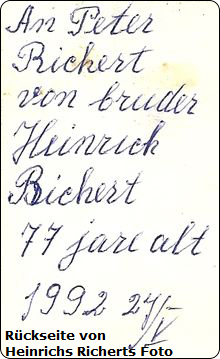 An Peter
Richert
von bruder
Heinrich
Richert
77 jare alt
1992 24/V
Rückseite von
Heinrichs Richerts Foto